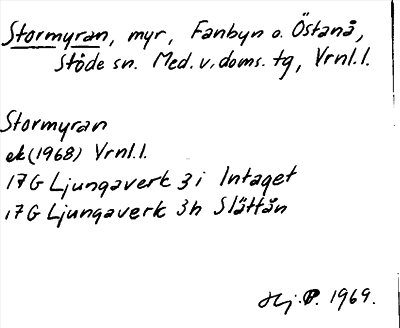 Stormyran, myr, Fanbyn o. Östanå,
Stöde sn. Med. v. doms. tg, Vrnl.l.
Stormyran
ek (1968) Vrnl.l.
17G Ljungaverk 3i Intaget
17G Ljungaverk 3h Slåttån
Hj. P. 1969.